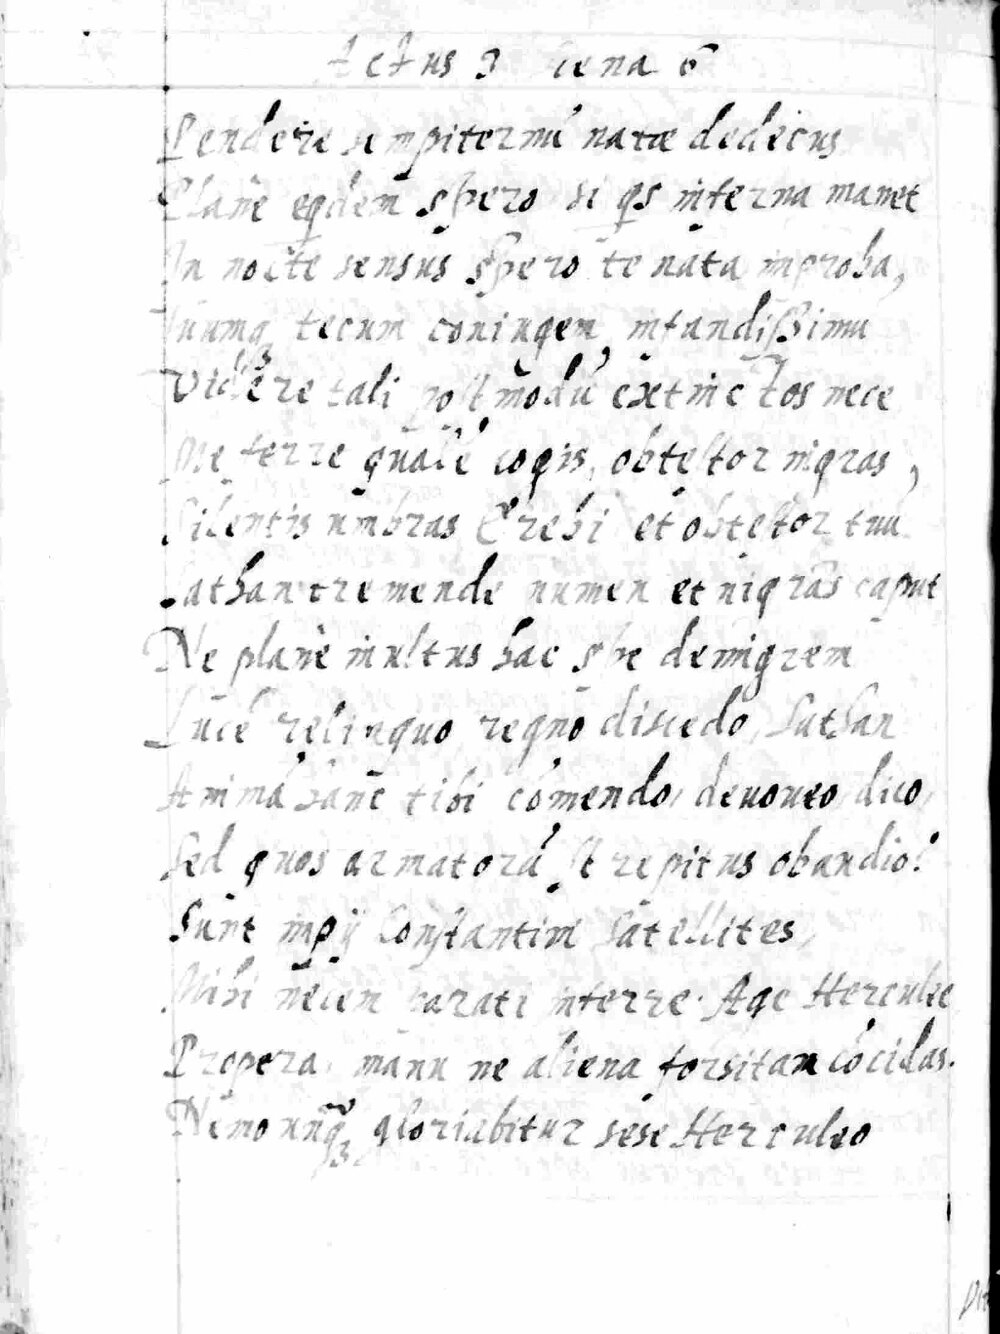 Actus 5 Scena 6
Pendere sempiternu' natæ dedecus
Planè eqdem spero si qs inferna manet
In nocte sensus spero te nata improba,
Tuumq tecum coniugem infandißimu
Videre tali postmodu' extinctos nece
Me ferre quale' cogis, obtestor nigras,
Silentis umbras Erebi et obtestor tuu
Sathan tremende numen et nigrans caput
Ne planè inultus hac spe demigrem
Luce' relinquo, regno discedo, Sathan
Anima' hanc tibi co'mendo, devoveo, dico,
Sed quos armatoru' strepitus obaudio!
Sunt impij Constantini Satellites,
Mihi necem parati inferre. Age Herculee
Propera, manu ne aliena forsitam co'cidas.
Nemo unq gloriabitur sese Herculeo